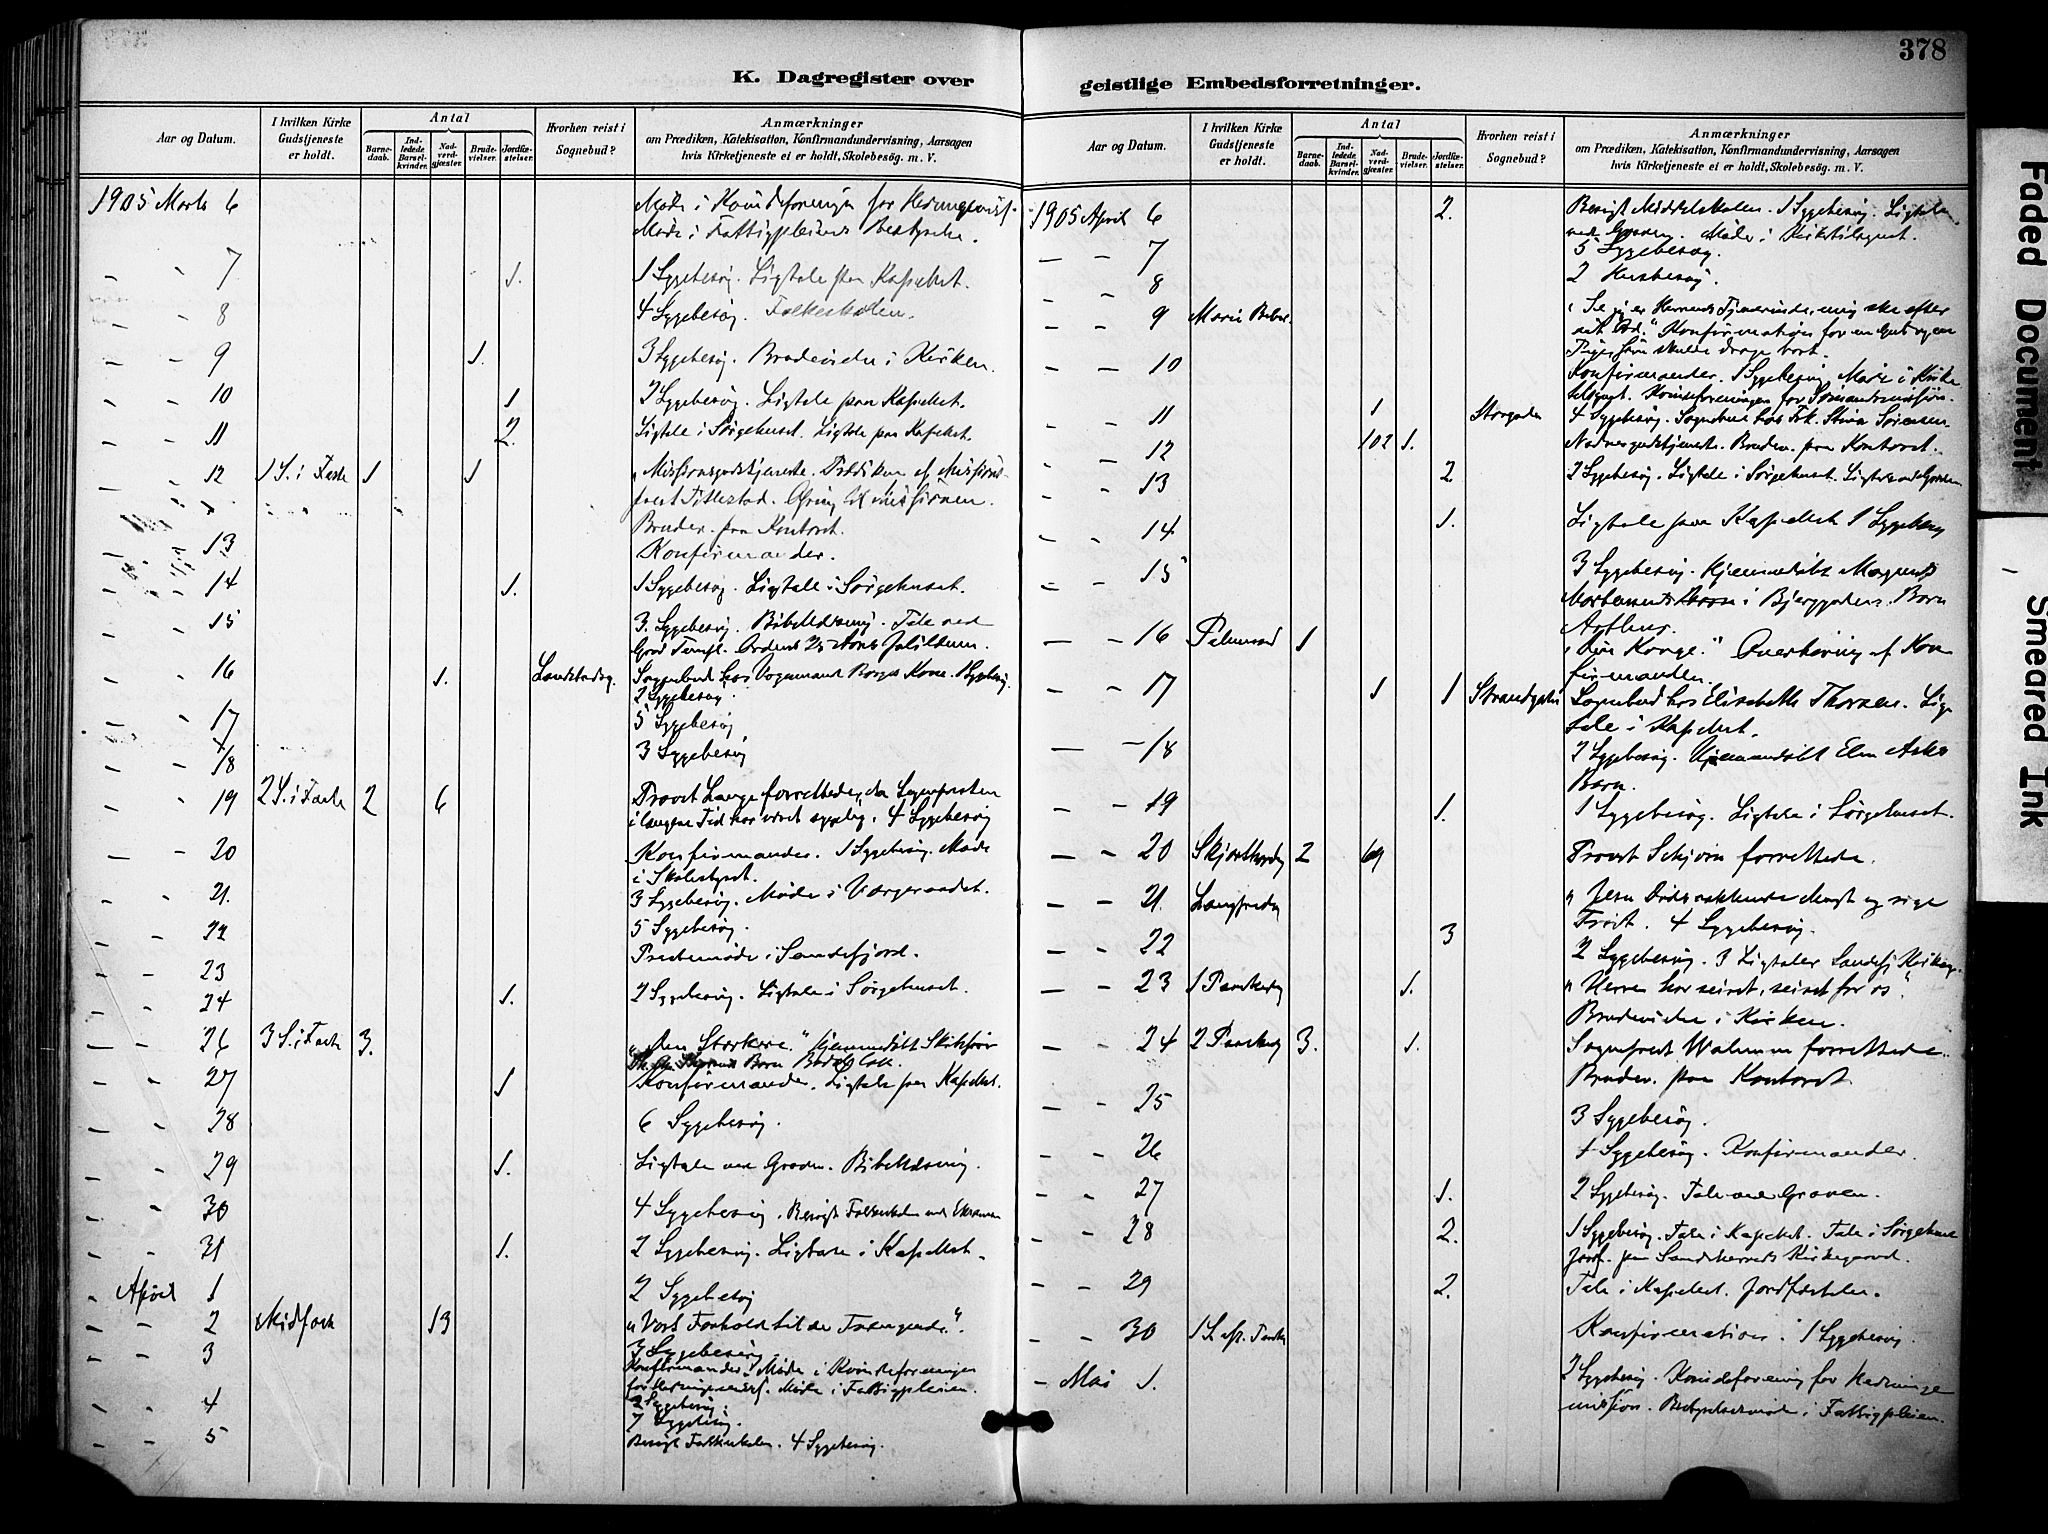 378
K. Dagregister over
geistlige Embedsforretninger.
Aar og Datum.
I hvilken Kirke
Gudstjeneste
er holdt.
Antal
Barne-
daab.
Ind-
ledede
Barsel-
kvinder.
Nad-
verd-
gjæster.
Brude-
vielser.
Jordfæ-
stelser.
Hvorhen reist i
Sognebud?
Anmærkninger
om Prædiken, Katekisation, Konfirmandundervisning, Aarsagen
hvis Kirketjeneste ei er holdt, Skolebesög. m. V.
1905 Marts 6 Møde i Kvindeforeningen for
Møde i Fattigpleiens Bestyrelse.
— " 7 1. 1 Sygebesøg. Ligtale paa Kapellet.
— " 8 4 Sygebesøg. Folkeskolen.
— " 9 1. 3 Sygebesøg. Brudevielse i Kirken.
— " 10 1 2 Sygebesøg. Ligtale paa Kapellet.
— " 11 2. Ligtale i Sørgehuset. Ligtale paa Kapellet.
— " 12 1 S. i Faste 1 1 Missionsgudstjeneste. Prædiken af Missions-
præst Tittestad. Ofring til Missionen.
Brudev. paa Kontoret.
— " 13 Konfirmander.
— " 14 1. 1 Sygebesøg. Ligtale i Sørgehuset.
— " 15 3. Sygebesøg. Bibellæsning. Tale ved
Good Templ. Ordenens 25 Aars Jubilæum.
— " 16 1. Sognebud hos Kone. 1 Sygebesøg.
2 Sygebesøg
— " 17 5 Sygebesøg
— " 18 3 Sygebesøg
— " 19 2 S. i Faste 2 6 Provst Lange forrettede, da Sognepresten
i længere Tid har været sygelig. 4 Sygebesøg
— " 20 Konfirmander. 1 Sygebesøg. Møde
i Skolestyret.
— " 21. 3 Sygebesøg. Møde i Værgeraadet.
— " 22 5 Sygebesøg.
— " 23 Prestemøde i Sandefjord.
— " 24 1. 2 Sygebesøg. Ligtale i Sørgehuset.
— " 26 3 S. i Faste 3. "Den Stærkere." Hjemmedøbt
Barn
— " 27 1 Konfirmander. Ligtale paa Kapellet.
— " 28 6 Sygebesøg.
— " 29 1. Ligtale ved Graven. Bibellæsning.
— " 30 4 Sygebesøg. Besøgt Folkeskolen ved Eksamen
— " 31 1. 2 Sygebesøg. Ligtale i Kapellet.
" April 1 2 Sygebesøg
— " 2 Midfaste 13 "Vort Forhold til de
— " 3 3 Sygebesøg.
Konfirmander. Møde i Kvindeforeningen
for Hedningemis. Møde i Fattigpleien.
— " 4 2 Sygebesøg.
7 Sygebesøg.
— " 5 Besøgt Folkeskolen. 4 Sygebesøg.
Aar og Datum.
I hvilken Kirke
Gudstjeneste
er holdt.
Antal
Barne-
daab.
Ind-
ledede
Barsel-
kvinder.
Nad-
verd-
gjæster.
Brude-
vielser.
Jordfæ-
stelser.
Hvorhen reist i
Sognebud?
Anmærkninger
om Prædiken, Katekisation, Konfirmandundervisning, Aarsagen
hvis Kirketjeneste ei er holdt, Skolebesög. m. V.
1905 April 6 2. Besøgt Middelskolen. 1 Sygebesøg. Ligtale
ved Graven. Møde i Kirketilsynet.
— — 7 5 Sygebesøg.
— — 8 2 Husbesøg.
— — 9 Mariæ Bebud. "Se jeg er Herrens Tjenerinde, mig ske efter
dit Ord." Konfirmation for en Gut og en
Pige, som skulde drage bort.
— — 10 Konfirmander. 1 Sygebesøg. Møde i Kirke
tilsynet. Kvindeforeningen for Sømandsmission.
— — 11 1 Storgaden 4 Sygebesøg. Sognebud hos Frk. Sørensen
— — 12 102 1. Nadvergudstjeneste. Brudev. paa Kontoret.
— — 13 2. 2 Sygebesøg. Ligtale i Sørgehuset. Ligtale ved Graven
— — 14 1. Ligtale paa Kapellet 1 Sygebesøg
— — 15 3 Sygebesøg. Hjemmedøbt Magnus
Mortensens i Bjerggaden. Barn
— — 16 Palmesød 1 "Din Konge." Overhøring af Kon-
firmanden.
— — 17 1 1 Strandgaden Sognebud hos Elisabeth Thorsen. Lig-
tale i Kapellet.
— — 18 2 Sygebesøg. Hjemmedøbt
Barn.
— — 19 1. 1 Sygebesøg. Ligtale i Sørgehuset.
— — 20 Skjærthorsdag 2 69 Provst Schjøn forrettede.
— — 21. Langfredag "Jesu Døds Magt og rige
Trøst. 4 Sygebesøg.
— — 22 3 2 Sygebesøg. 3 Ligtaler
— — 23 1 Paaskedag 1. "Herren har seiret, seiret for os".
Brudevielse i Kirken.
— — 24 2 Paaskedag 3. 1. Sognepræst forrettede.
Brudev. paa Kontoret
— — 25 3 Sygebesøg.
— — 26 4 Sygebesøg. Konfirmander.
— — 27 1. 2 Sygebesøg. Tale ved Graven.
— — 28 2. 1 Sygebesøg. Tale i Kapellet. Tale i Sørgehuset
Jordf. paa Sandeherreds Kirkegaard.
— — 29 2. Tale i Kapellet. Jordfæstelse.
— — 30 1 S. ef. Paaske Konfirmation. 1 Sygebesøg.
— Mai 1. 2 Sygebesøg. Kvindeforening for Hedninge
mission. Bestyrelsesmøde i Fattigpleien.
Faded Document
Smeared Ink